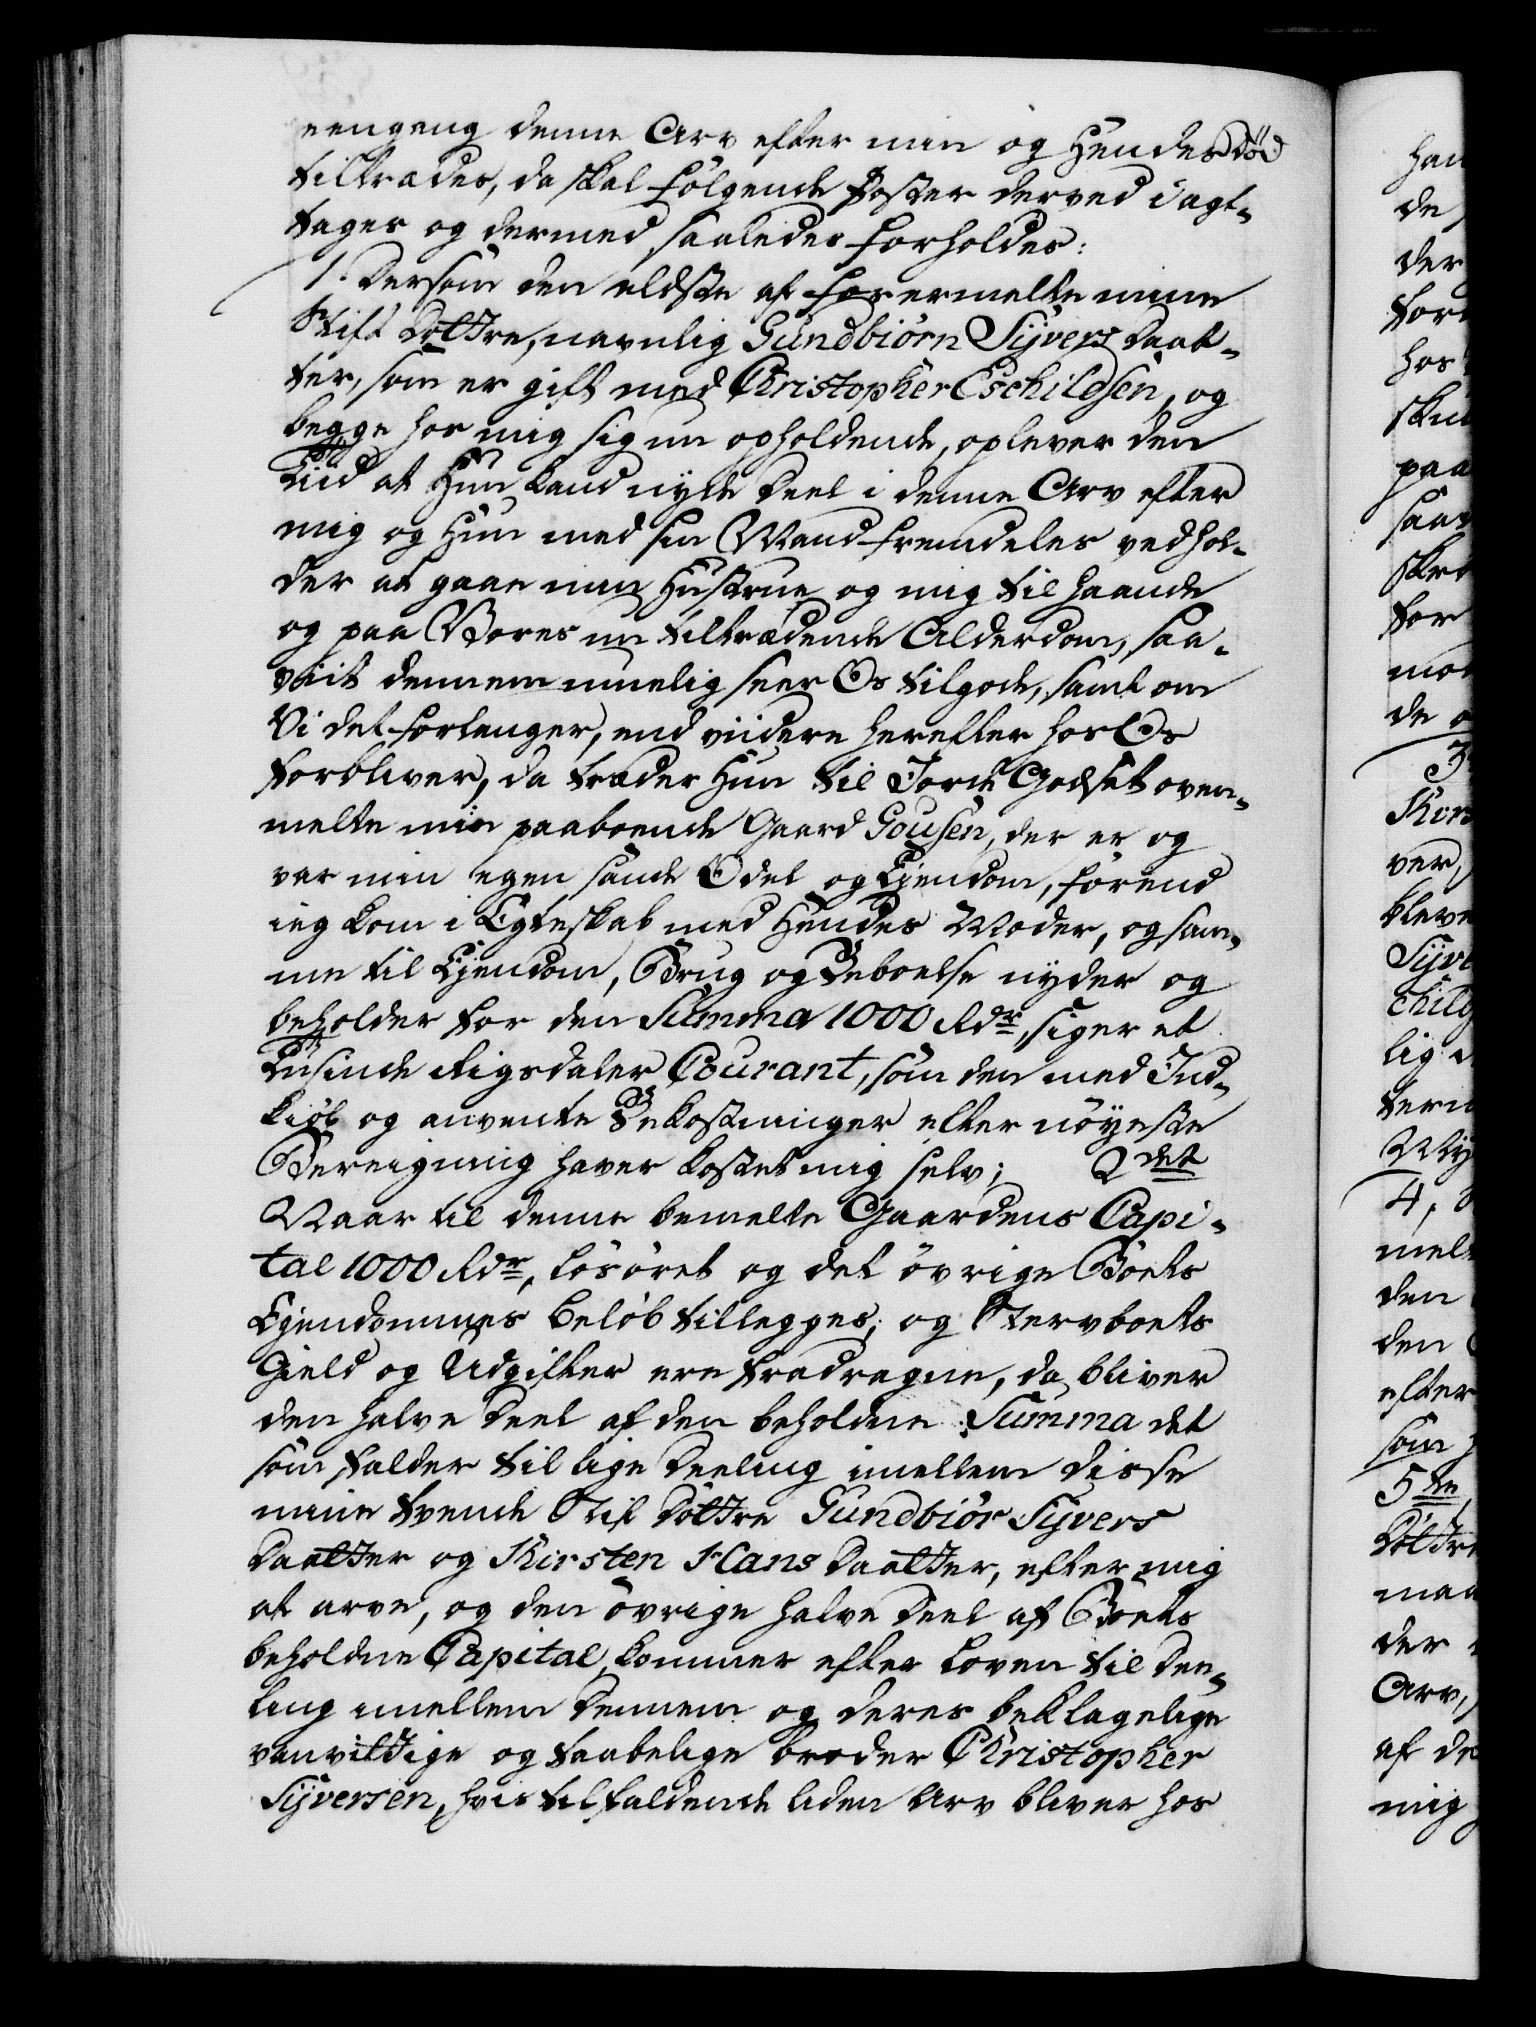 eengang denne Arv efter min og Hendes Död
tiltrædes, da skal følgende Poster derved iagt-
tages og dermed saaledes forholdes:
1. Dersom den eldste af forermelte mine
Stif Döttre, navnlig Gundbiörn Sijvers Daat-
ter, som er gift med Christopher Eschildsen, og
begge hos mig sig nu opholdende, oplever den
Tiid at Hun kand nyde Deel i denne Arv efter
mig og Hun med sin Mand fremdeles vedhol-
der at gaae min Hustrue og mig til haande
og paa Vores nu tiltrædende Alderdom, saa-
viit dennem muelig seer Os tilgode, samt om
Vi det forlanger, end viidere herefter hos Os
forbliver, da træder Hun til Jorde Godset oven-
melte min paaboende Gaard Gousen, der er og
var min egen sande Odel og Ejendom, förend
ieg kom i Egteskab med Hendes Moder, og sam-
me til Ejendom, Brug og Beboelse nyder og
beholder for den Summa 1000 Rdr, siger et
Tusinde Rigsdaler Courant, som den med Ind-
kiöb og anvente Bekostninger efter nöyeste
Beregning haver kostet mig selv; 2det
Naar til denne bemelte Gaardens Capi-
tal 1000 Rdr, Lösöret og det övrige Boets
Ejendommes Belöb tillegges, og Stervboets
Gield og Udgifter ere fradragne, da bliver
den halve Deel af den beholdne Summa det
som falder til lige Deeling imellem disse
mine tvende Stif Döttre Gundbiör Sijvers
Daatter og Kirsten Hans Daatter, efter mig
at arve, og den övrige halve Deel af Boets
beholdne Capital, kommer efter Loven til Dee-
ling imellem Dennem og deres beklagelige
vanvittige og taabelige broder Christopher
Sijversen, hvis tilfaldende liden Arv bliver hos